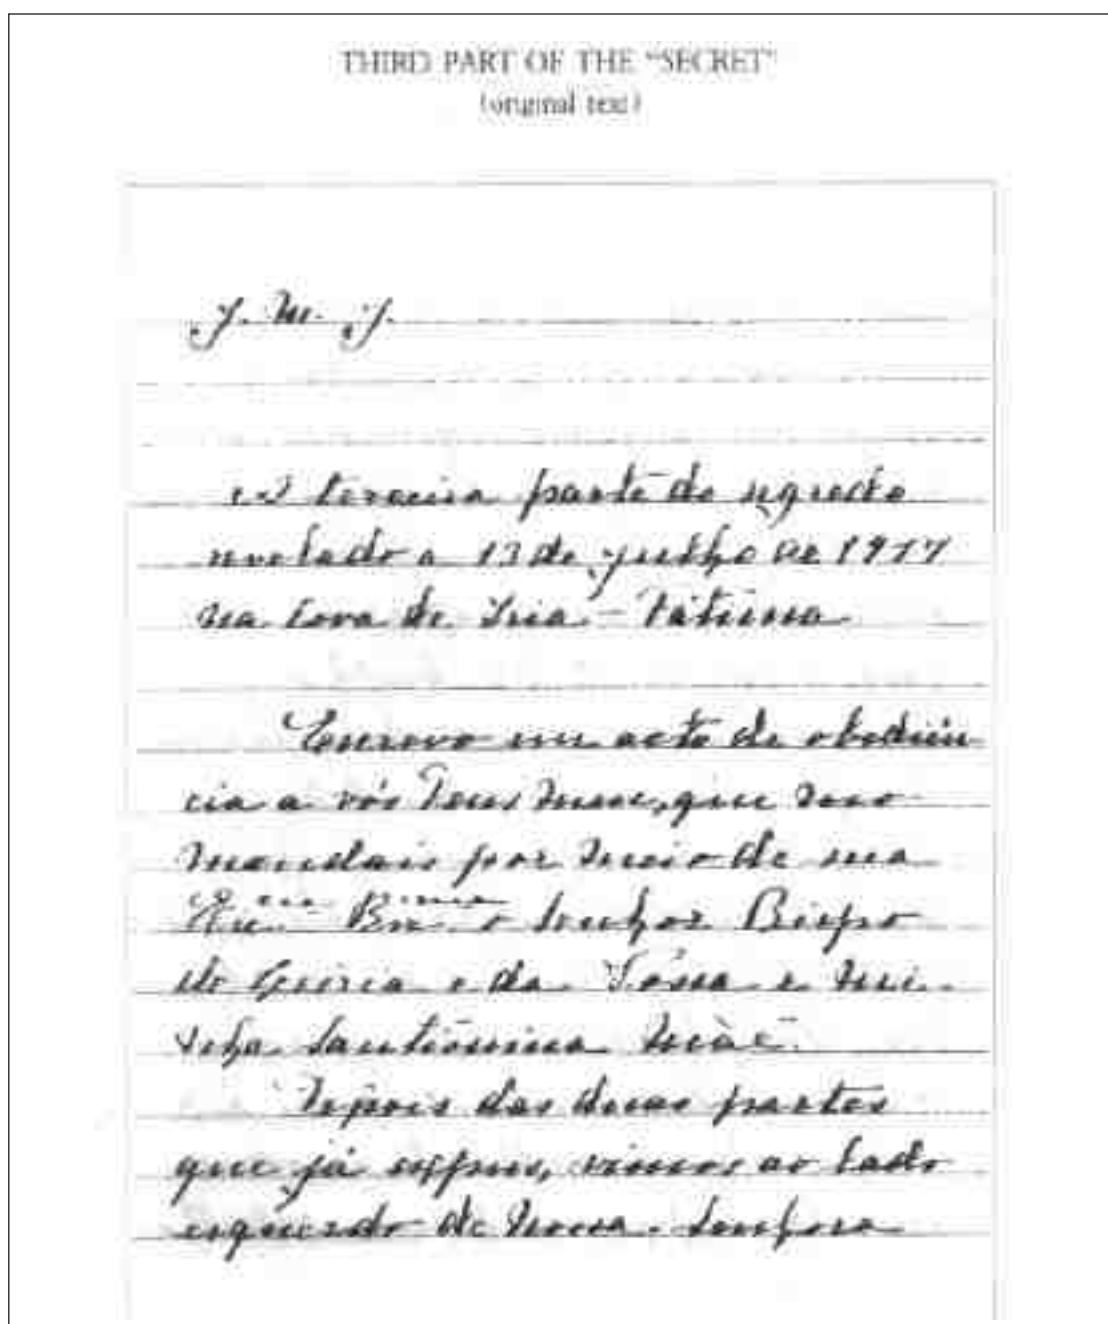 THIRD PART OF THE "SECRET"
(original text)
J. M. J.
A terceira parte do segredo
revelado a 13 de julho de 1917
na Cova da Iria - Fátima
Escrevo em acto de obediên-
cia a vós Deus meu, que mo
mandais por meio de sua
Ex.cia Rev.ma o Senhor Bispo
de Leiria e da Vossa e mi-
nha Santíssima Mãe.
Depois das duas partes
que já expus, vimos ao lado
esquerdo de Nossa Senhora